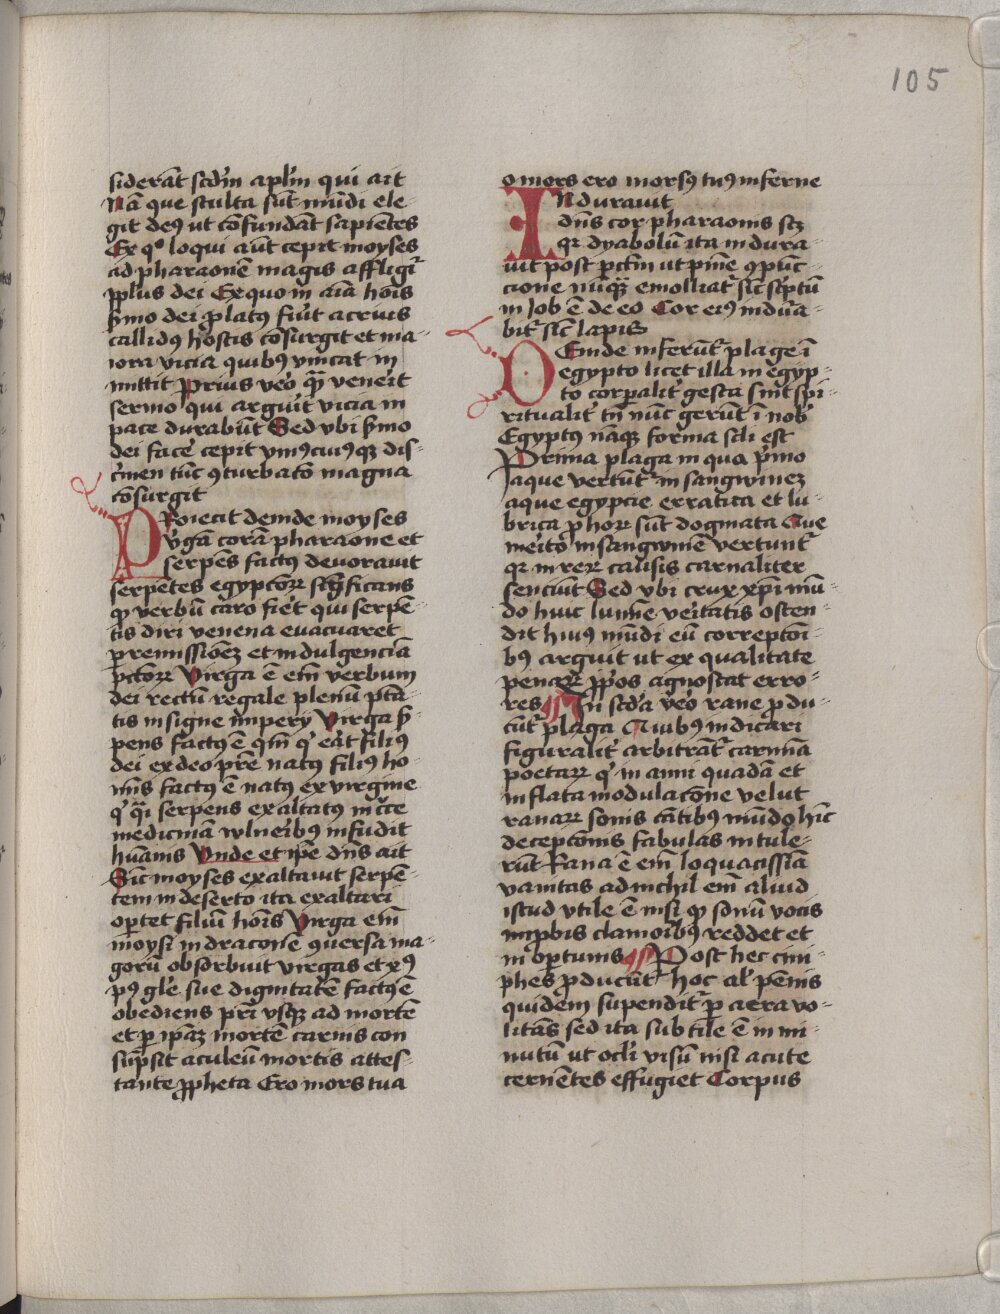 105
siderāt scd'm aplm̄ qui ait
Nā que stulta sūt mūdi ele
git deꝯ ut cōfundāt sapiētes
Ex qo loqui aūt cepit moyses
ad pharaonē magis affligit̄
pplus dei Ex quo in aīa hoīs
s̄mo dei platꝯ fu'it acrius
callidꝯ hostis cōsurgit et ma
iora vicia quibꝯ vincat in
mittit Prius veō qā vene'it
sermo qui argue'it vicia in
pace durabūt Sed vbi s̄mo
dei facē cepit vniꝯcuiꝯqꝫ dis
c'men tūc ꝯturbatō magna
cōsurgit
PRoiecit deinde moyses
v'gā corā pharaone et
serpēs factꝯ deuorauit
serpētes egypcoꝝ significans
qꝫ verbū caro fie't qui serpē
tis diri venena euacuaret
p remissiōeꝫ et indulgenciā
pctōꝝ Virga ē em̄ verbum
dei rectū regale plenū ptā
tis insigne impery Virga s̄
pens factꝯ ē qm̄ q' eāt filiꝯ
dei ex deo pr̄e natꝯ filiꝯ ho
mīs factꝯ ē natꝯ ex virgine
q' q̄i serpens exaltatꝯ in c'ce
medicinā wlneībꝯ infudit
hūanis Unde et ip̄e dn̄s ait
Sic moyses exaltauit serpē
tem in deserto ita exaltari
opꝫtet filiū hoīs Virga em̄
moysi in draconē ꝯuersa ma
gorū obsorbuit virgas et xꝯ
pꝰ gl'e sue dignitatē factꝯ ē
obediens pr̄i vsqꝫ ad mortē
et p ip̄aꝫ mortē carnis con
sūpsit aculeū mortis attes
tante ppheta Ero mors tua
o mors ero morsꝯ tuꝯ inferne
INdurauit
dn̄s cor pharaonis scꝫ
qr dyabolū ita indura
uit post pctm̄ ut pīne ꝯpūc
cione nūqꝫ emolliat̄ sic sc'ptū
in Job ē de eo Cor eiꝯ indura
bit̄ sic lapis
DEinde inferūt̄ plage ī
egypto licet illa in egyp
to corpalit' gesta sint spi
ritualit' tn̄ nūc gerūt̄ ī nob'
Egyptꝯ nāqꝫ forma scl'i est
Prima plaga in qua p'mo
aque vertūt̄ in sangwineꝫ
aque egypcie erratica et lu
brica ph'oꝝ sūt dogmata Que
meito in sangwinē vertunt̄
qr in reꝝ causis carnaliter
senciūt Sed vbi crux xp̄i mū
do huic lumē veitatis osten
dit hiuꝯ mūdi eū correptoi
bꝯ arguit ut ex qualitate
penaꝝ ppos agnoscat erro
res In scd'a veō rane pdu
cūt̄ plaga Quibꝯ indicari
figuralit' arbitrāt̄ carmīa
poetaꝝ q' inanni quadā et
inflata modulacōne velut
ranaꝝ sonis cātibꝯ mūdo hīc
decepcōnis fabulas intule
rūt Rana ē em̄ loquacissīa
vanitas ad nichil em̄ aliud
istud vtile ē nisi qꝫ sonū vocis
imp̄bis clamoribꝯ reddet et
in optunis Post hec cini
phes pducūt̄ hoc al' pēnis
quidem supendit̄ p aera vo
litās sed ita subtile ē in mi
nutū ut ocl'i visū nisi acute
cernētes effugiet Corpus